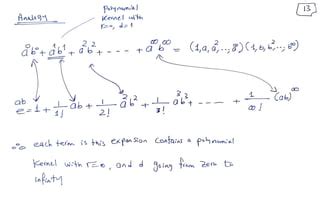 13
Analogy
polynomial
kernel with
r=0, d=1
a⁰b⁰ + a¹b¹ + a²b² + ---- + a^∞ b^∞ = (1, a, a², .., a^∞) (1, b, b², .., b^∞)
e^{ab} = 1 + 1/1! ab + 1/2! a²b² + 1/3! a³b³ + ---- + 1/∞! (ab)^∞
∴ each term is this expansion contains a polynomial
kernel with r=0, and d going from zero to
infinity